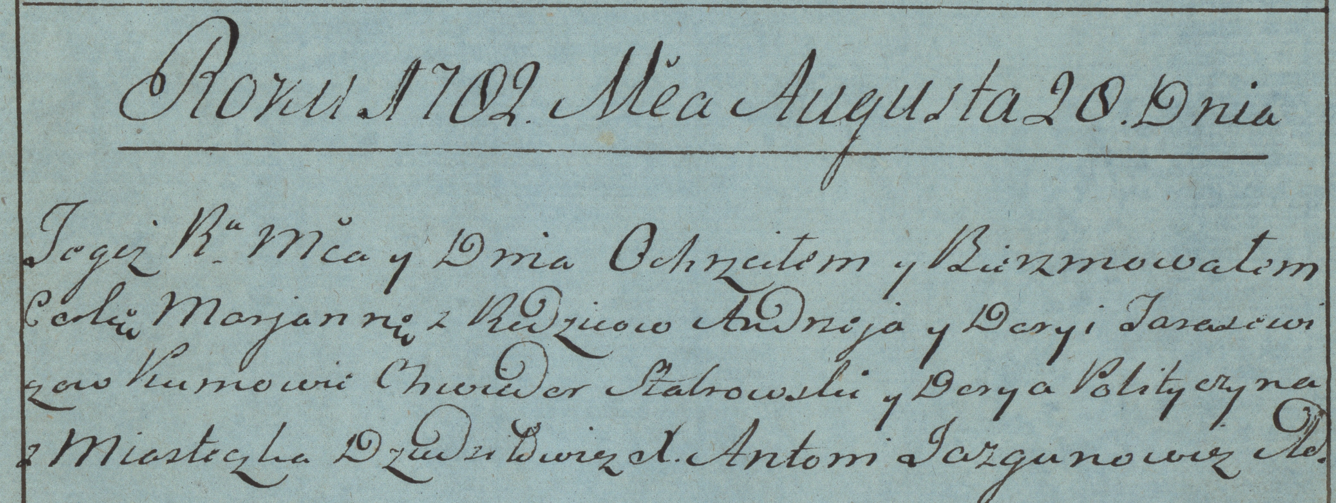 Roku 1782. Mca Augusta 20. Dnia
Tegiż Ru. Mca y Dnia Ochrzciłem y Bierzmowałem
Corkę Marjannę z Rodzicow Andrzeja y Daryi Tarasewi
czow Kumowie Chwiedor Stabrowski y Darya Polityczyna
z Miasteczka X. Antoni Jazgunowicz